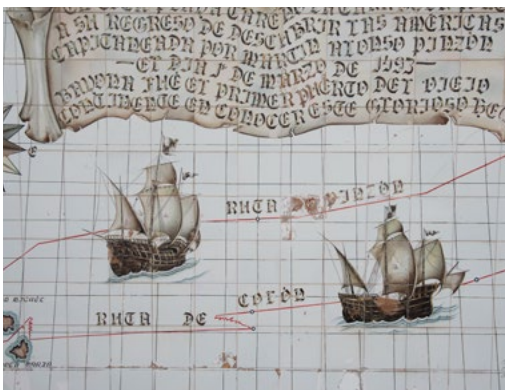 A SU REGRESO DE DESCUBRIR LAS AMERICAS
CAPITANEADA POR MARTIN ALONSO PINZÓN
—EL DIA 1 DE MARZO DE 1493—
BAYONA FUÉ EL PRIMER PUERTO DEL VIEJO
CONTINENTE EN CONOCER ESTE GLORIOSO
E
RUTA DE PINZÓN
RUTA DE COLÓN